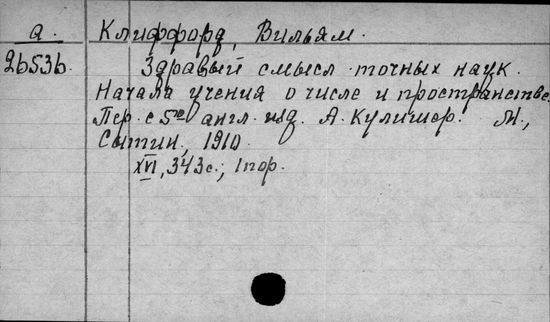 а. Клиффорд, Вильям.
26536. Здравый смысл точных наук.
Начала учения о числе и пространстве.
Пер. с 5го англ. изд. А. Кулишер. М.,
Сытин, 1910.
XVI, 343 с.; 1 пор.